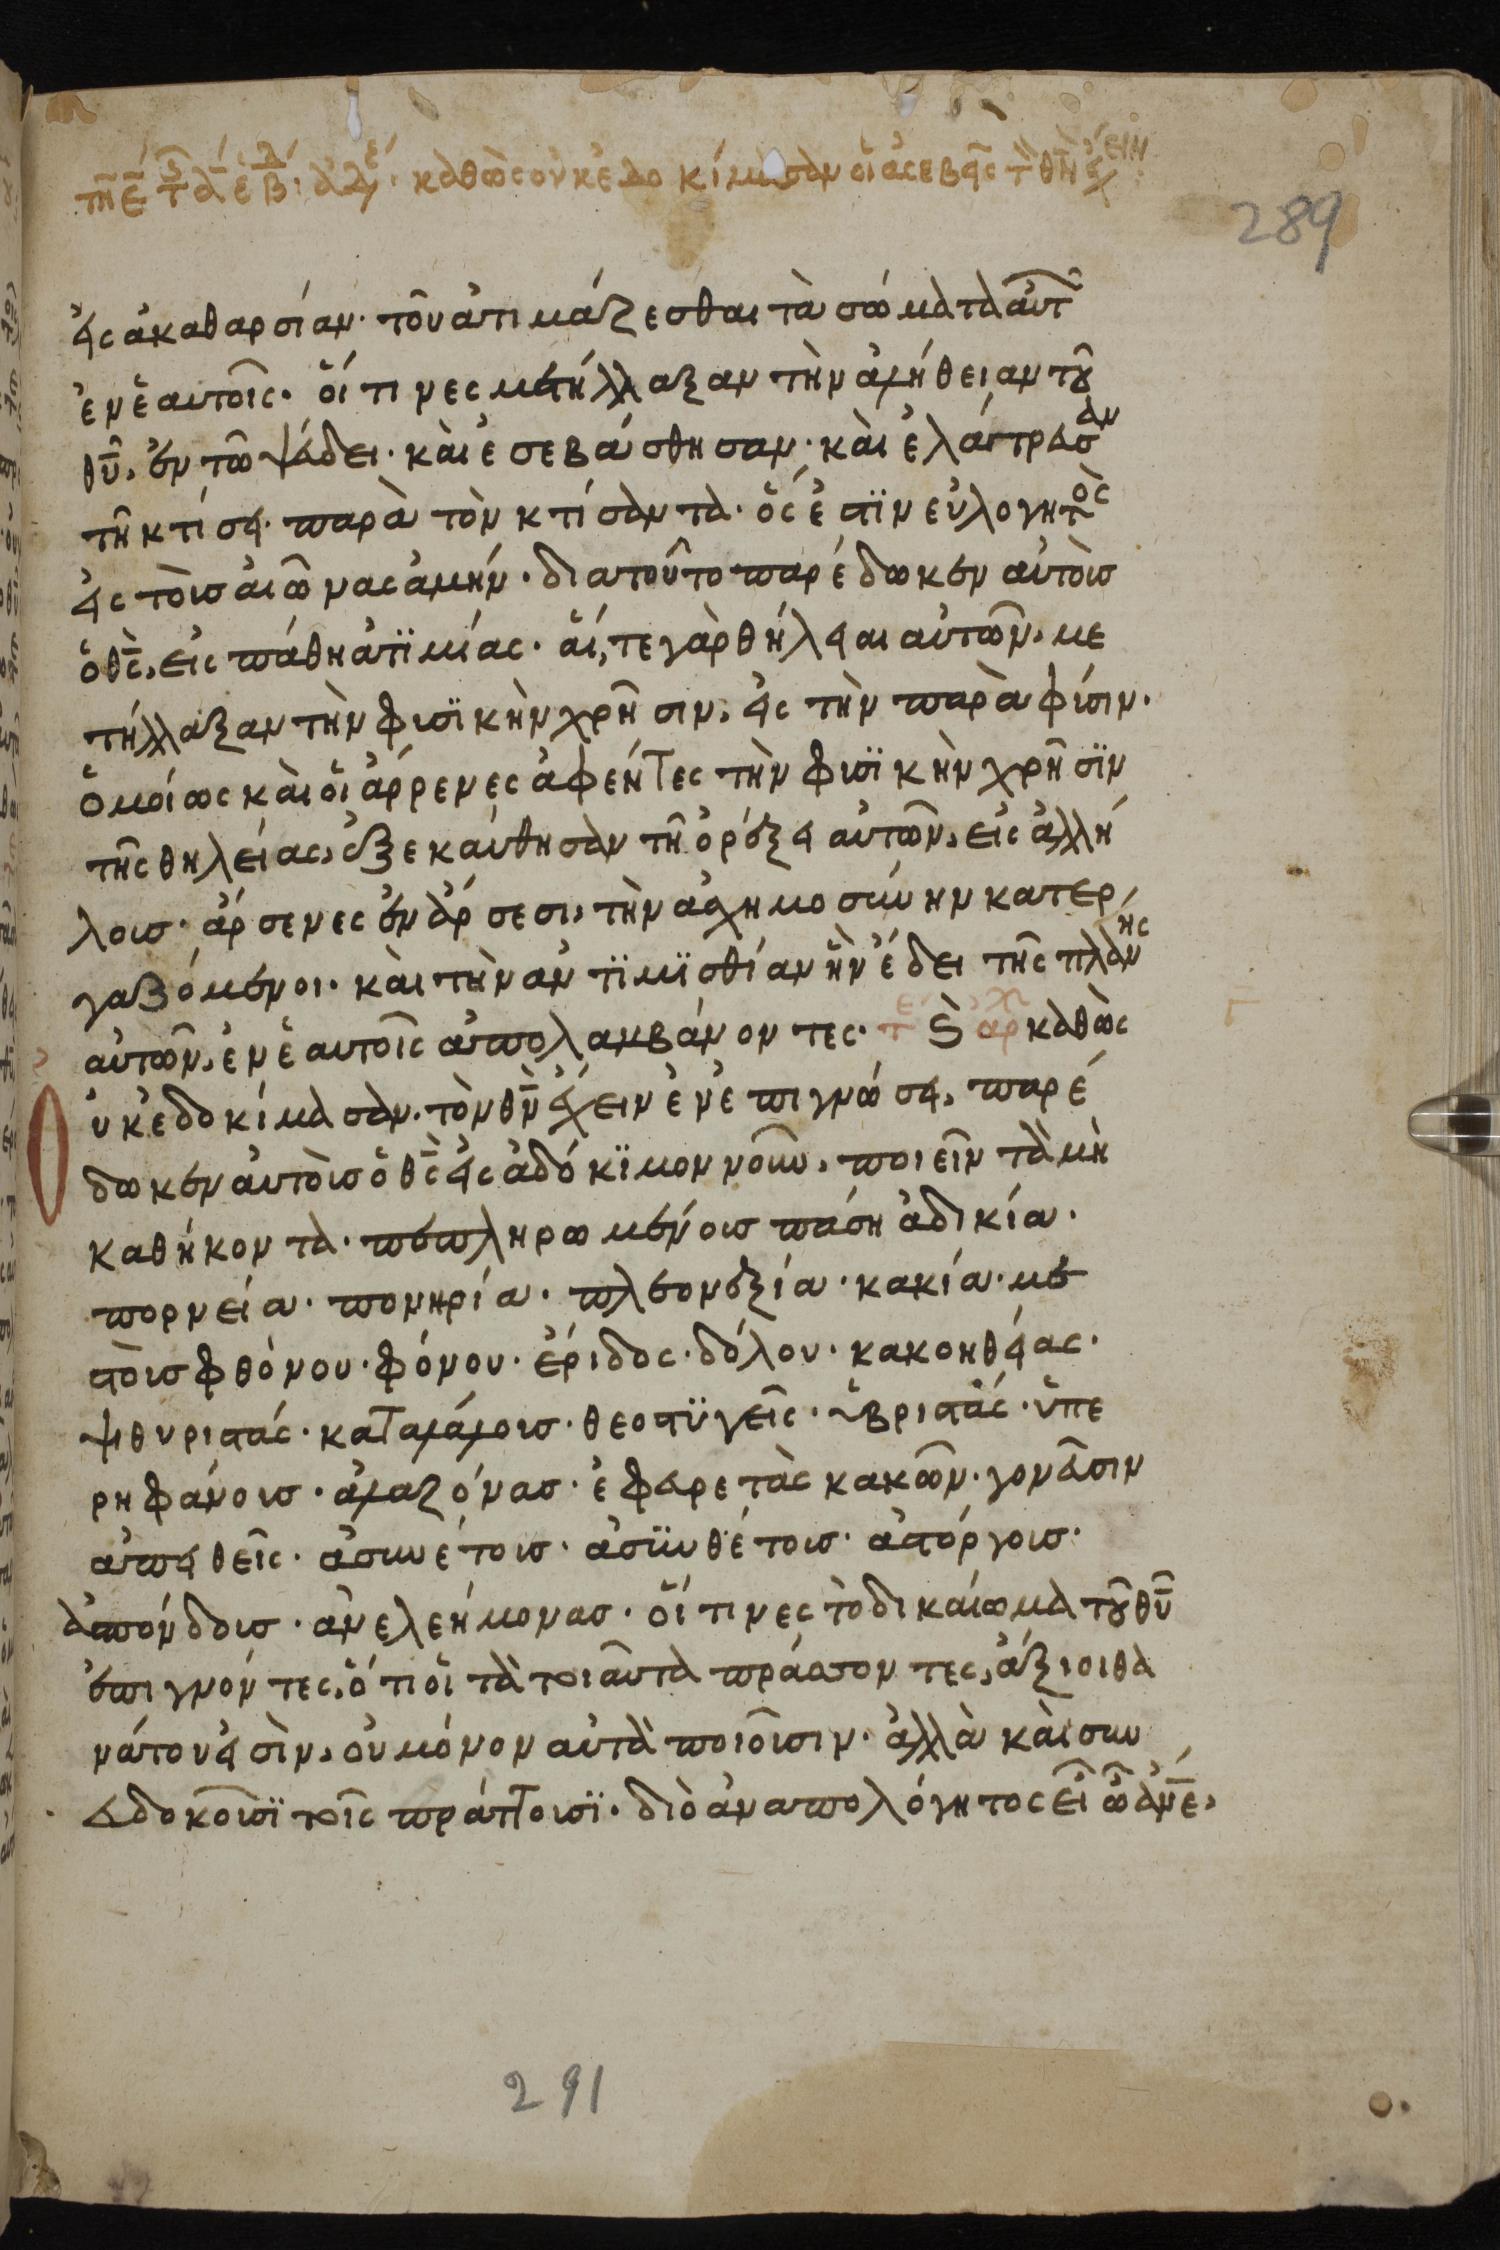 τῆ ε̄ τ̑ α̅ ἑ β̅δ · ἀδ̅ε · καθὼς οὐκ ἐδοκίμασαν οἱ ἀσεβεῖς τ̀ θν̅ ἔχειν
289
εἰς ἀκαθαρσίαν· τοῦ ἀτιμάζεσθαι τὰ σώματα αὐτῶ
ἐν ἑαυτοῖς· οἵ τινες μετήλλαξαν τὴν ἀλήθειαν τοῦ
θυ̅, ἐν τῶ ψεύδει· καὶ ἐσεβάσθησαν· καὶ ἐλάτρευσαν
τῆ κτίσει· παρὰ τὸν κτίσαντα· ὅς ἐστϊν εὐλογητὸς
εἰς τοὺσ αἰῶνας ἀμήν· διατοῦτο παρέδωκεν αὐτοὺσ
ὁ θς̅, εἰς πάθη ἀτϊμίας· αἵ, τε γὰρ θήλειαι αὐτῶν, με
τήλλαξαν τὴν φυσϊκὴν χρῆσιν, εἰς τὴν παρὰ φύσιν·
ὁμοίως καὶ οἱ ἄρρενες ἀφέντες τὴν φυσϊκὴν χρῆσϊν
τῆς θηλείας, ἐξεκαύθησαν τῆ ὀρέξει αὐτῶν, εἰς ἀλλή
λουσ· ἄρσενες ἐν ἄρσεσι, τὴν ἀσχημοσύνην κατερ
γαζόμενοι· καὶ τὴν ἀντϊμϊσθίαν ἣν ἔδει τῆς πλάνης
αὐτῶν, ἐν ἑαυτοῖς ἀπολαμβάνοντες· τε ς̀ ἀρχ καθὼς
ὐκ ἐδοκίμασαν, τὸν θν̅ ἔχειν ἐν ἐπιγνώσει, παρέ
δωκεν αὐτοὺσ ὁ θς̅ εἰς ἀδόκϊμον νοῦν, ποιεῖν τὰ μὴ
καθήκοντα· πεπληρωμένουσ πάση ἀδικία·
πορνεία· πονηρία· πλεονεξία· κακία· μεσ
τοὺσ φθόνου· φόνου· ἔριδος· δόλου· κακοηθείας·
ψιθυριστάς· καταλάλουσ· θεοστϋγεῖς· ὑβριστὰς· ὑπε
ρηφάνουσ· ἀλαζόνασ· ἐφευρετὰς κακῶν· γονεῦσιν
ἀπειθεῖς· ἀσυνέτουσ· ἀσϋνθέτουσ· ἀστόργουσ·
ἀσπόνδουσ· ἀνελεήμονασ· οἵ τινες τὸ δικαίωμα τοῦ θυ̅
ἐπιγνόντες, ὅτι οἱ τὰ τοιαῦτα πράσσοντες, ἄξιοι θα
νάτου εἰσὶν, οὐ μόνον αὐτὰ ποιοῦσιν· ἀλλὰ καὶ συν
ευδοκοῦσϊ τοῖς πράττουσϊ· διὸ ἀναπολόγητος εἶ ὦ ἄνε̅,
291